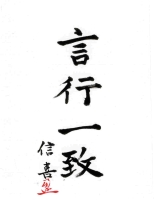 言行一致
信喜